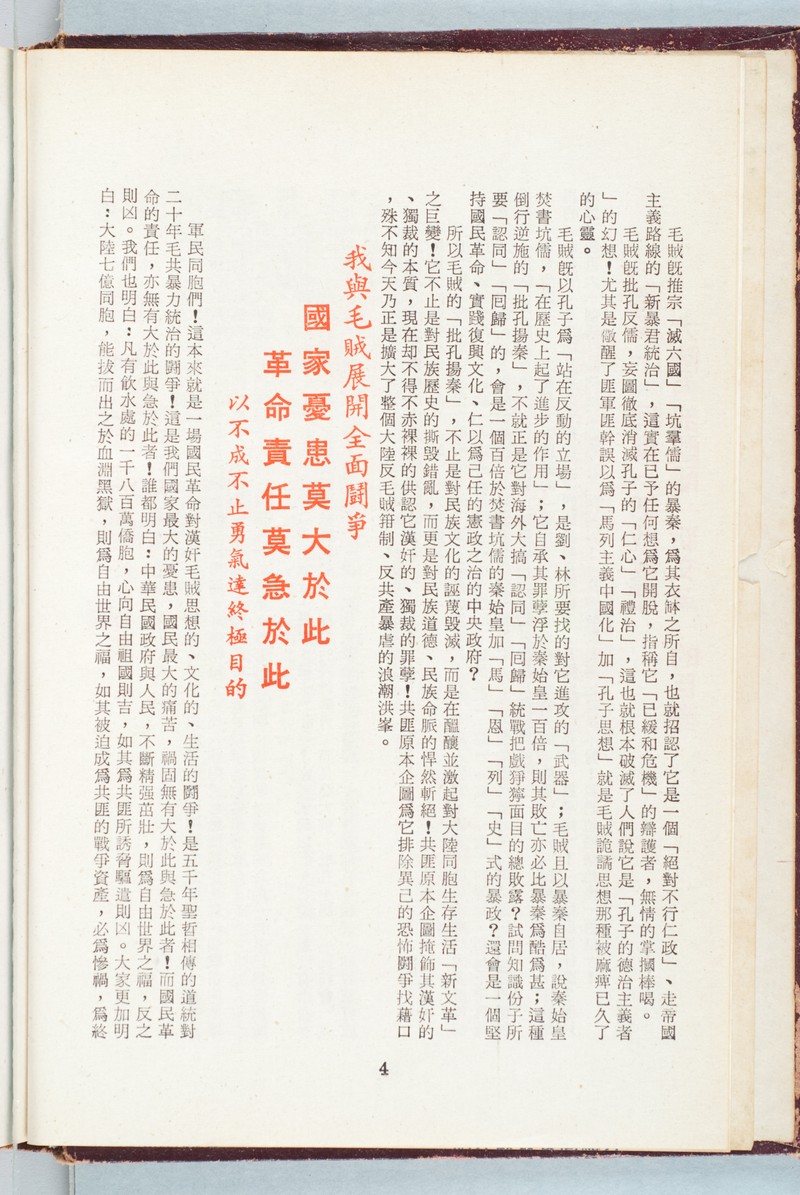 毛賊旣推宗「滅六國」「坑羣儒」的暴秦，爲其衣缽之所自，也就招認了它是一個「絕對不行仁政」、走帝國
主義路線的「新暴君統治」，這實在已予任何想爲它開脫，指稱它「已緩和危機」的辯護者，無情的掌摑棒喝。
毛賊旣批孔反儒，妄圖徹底消滅孔子的「仁心」「禮治」，這也就根本破滅了人們說它是「孔子的德治主義者
」的幻想！尤其是儆醒了匪軍匪幹誤以爲「馬列主義中國化」加「孔子思想」就是毛賊詭譎思想那種被麻痺已久了
的心靈。
毛賊旣以孔子爲「站在反動的立場」，是劉、林所要找的對它進攻的「武器」；毛賊且以暴秦自居，說秦始皇
焚書坑儒，「在歷史上起了進步的作用」；它自承其罪孽浮於秦始皇一百倍，則其敗亡亦必比暴秦爲酷爲甚；這種
倒行逆施的「批孔揚秦」，不就正是它對海外大搞「認同」「囘歸」統戰把戲猙獰面目的總敗露？試問知識份子所
要「認同」「囘歸」的，會是一個百倍於焚書坑儒的秦始皇加「馬」「恩」「列」「史」式的暴政？還會是一個堅
持國民革命、實踐復興文化、仁以爲己任的憲政之治的中央政府？
所以毛賊的「批孔揚秦」，不止是對民族文化的誣蔑毀滅，而是在醞釀並激起對大陸同胞生存生活「新文革」
之巨變！它不止是對民族歷史的撕毀錯亂，而更是對民族道德、民族命脈的悍然斬絕！共匪原本企圖掩飾其漢奸的
、獨裁的本質，現在却不得不赤裸裸的供認它漢奸的、獨裁的罪孽！共匪原本企圖爲它排除異己的恐怖鬪爭找藉口
，殊不知今天乃正是擴大了整個大陸反毛賊箝制、反共產暴虐的浪潮洪峯。
我與毛賊展開全面鬪爭
國家憂患莫大於此
革命責任莫急於此
以不成不止勇氣達終極目的
軍民同胞們！這本來就是一場國民革命對漢奸毛賊思想的、文化的、生活的鬪爭！是五千年聖哲相傳的道統對
二十年毛共暴力統治的鬪爭！這是我們國家最大的憂患，國民最大的痛苦，禍固無有大於此與急於此者！而國民革
命的責任，亦無有大於此與急於此者！誰都明白：中華民國政府與人民，不斷精强茁壯，則爲自由世界之福，反之
則凶。我們也明白：凡有飮水處的一千八百萬僑胞，心向自由祖國則吉，如其爲共匪所誘脅驅遣則凶。大家更加明
白：大陸七億同胞，能拔而出之於血淵黑獄，則爲自由世界之福，如其被迫成爲共匪的戰爭資產，必爲慘禍，爲終
4